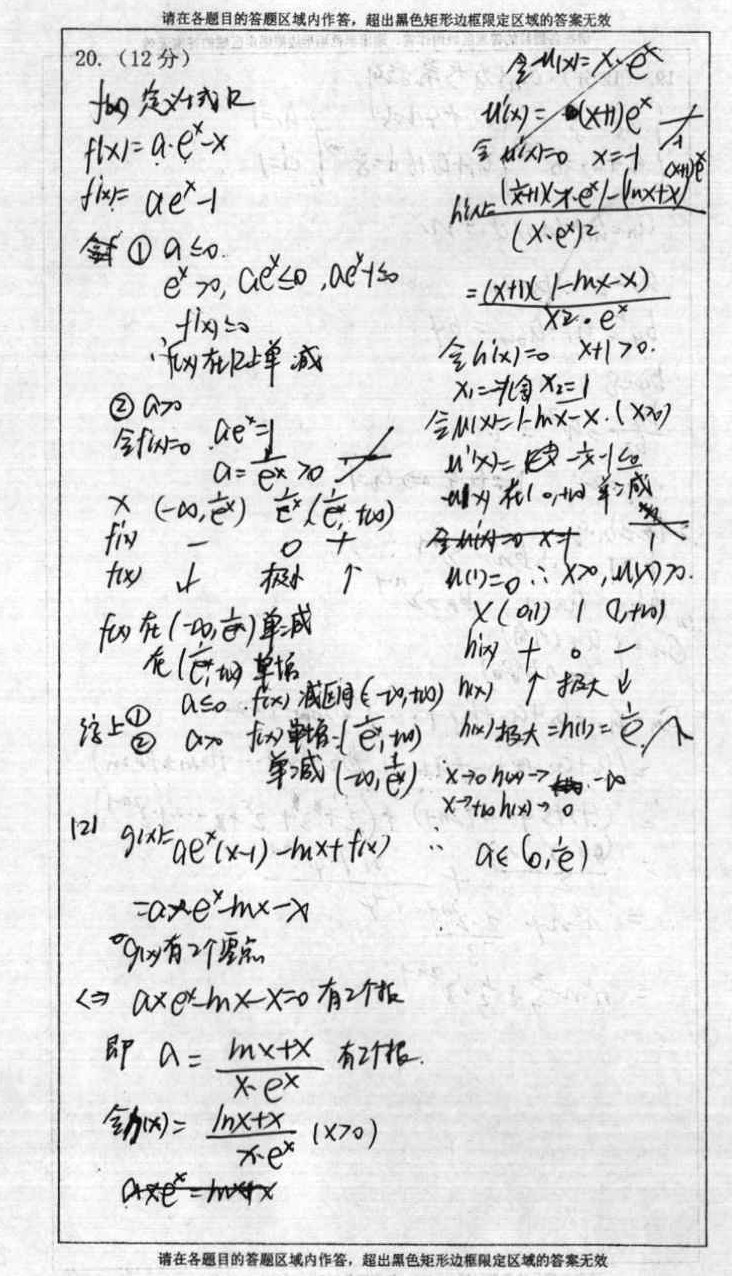 请在各题目的答题区域内作答，超出黑色矩形边框限定区域的答案无效
20.（12分）
f(x) 定义域R
f(x)=a·e^x-x
f'(x)= ae^x-1
① a≤0.
e^x>0, ae^x≤0, ae^x-1≤0
f'(x)≤0
∴f(x)在R上单减
② a>0
令f'(x)=0 ae^x=1
a=1/e^x>0
x (-∞,1/e^x) 1/e^x (1/e^x,+∞)
f'(x) - 0 +
f(x) ↓ 极小 ↑
f(x)在(-∞,1/e^x)单减
在(1/e^x,+∞)单增
综上① a≤0 f(x)减区间(-∞,+∞)
② a>0 f(x)单增(1/e^x,+∞)
单减(-∞,1/e^x)
(2) g(x)=ae^x(x-1)-lnx+f(x)
=a·x·e^x-lnx-x
g(x)有2个零点
<=> axe^x-lnx-x=0 有2个根
即 a=(lnx+x)/(x·e^x) 有2个根.
令h(x)=(lnx+x)/(x·e^x) (x>0)
axe^x=lnx+x
令u(x)=x·e^x
u'(x)=(x+1)e^x
令u'(x)=0 x=-1
h'(x)=((1/x+1)(x·e^x)-(lnx+x)(x+1)e^x)/(x·e^x)2
=(x+1)(1-lnx-x)/(x2·e^x)
令h'(x)=0 x+1>0.
x2=1
令u(x)=1-lnx-x.(x>0)
u'(x)=-1/x-1≤0
u(x)在(0,+∞)单减
u(1)=0 ∴x>0,u(x)>0.
x (0,1) 1 (1,+∞)
h'(x) + 0 -
h(x) ↑ 极大 ↓
h(x)极大=h(1)=1/e.
x→0 h(x)→ -∞
x→+∞ h(x)→0
∴ a∈(0,1/e)
请在各题目的答题区域内作答，超出黑色矩形边框限定区域的答案无效